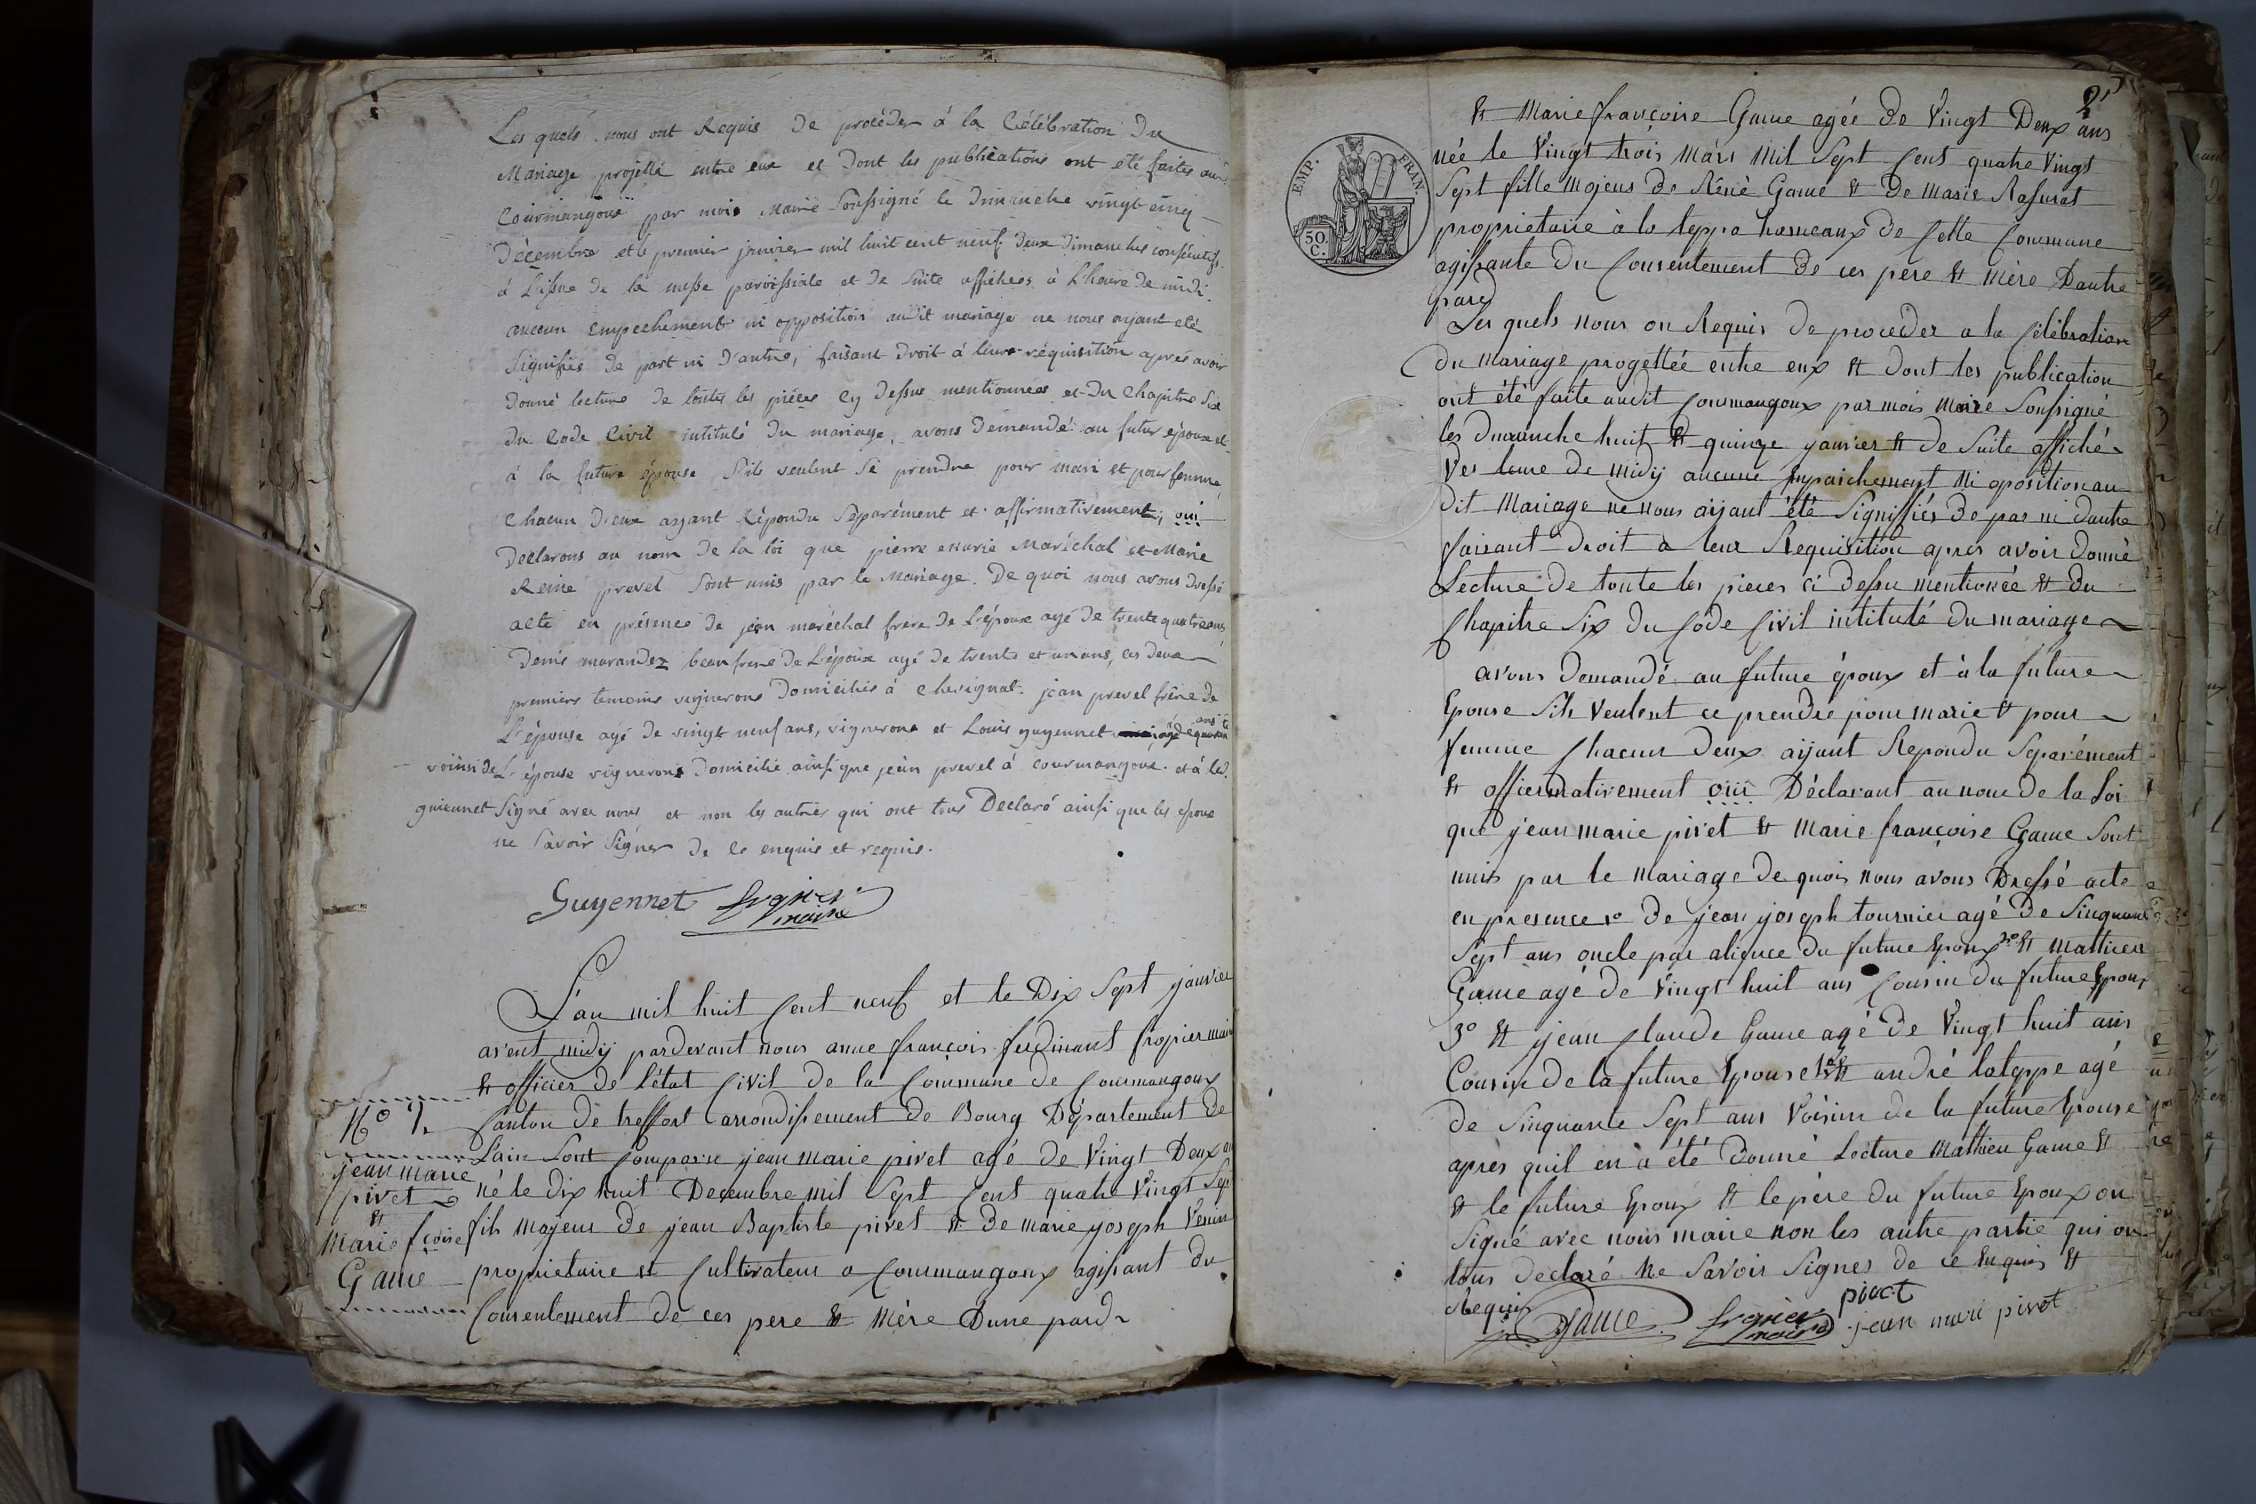 Les quels nous ont Requis de procéder à la Célébration du
Mariage projetté entre eux et dont les publications ont été faites au
Courmangoux par mois Maire Soussigné le Dimanche vingt cinq
Décembre et le premier janvier mil huit cent neuf Deux Dimanches consécutifs
à L'issue de la messe paroissiale et de suite affichées à L'heure de midi
aucun Empechement ni opposition audit mariage ne nous ayant eté
Signifiés de part ni d'autre, faisant Droit à leurs réquisition après avoir
Donné lecture de toutes les pièces cy Dessus mentionnées et du Chapitre Six
du Code Civil intitulé du mariage, avons Demandé au futur époux et
à la future épouse S'ils veulent Se prendre pour mari et pour femme,
Chacun D'eux ayant Répondu Séparément et affirmativement, oui
Declarons au nom de la loi que pierre marie Maréchal et Marie
Reine prevel Sont unis par le Mariage. De quoi nous avons Dressé
acte en présence de jean maréchal frere de L'époux agé de trente quatre ans
Denis marandez beau frere de L'époux agé de trente et un ans, ces deux
premiers temoins vignerons Domiciliés à Chevignat. jean prevel frère de
L'épouse agé de vingt neuf ans, vignerons et Louis guyennet agé de quarante ans
voisin de L'épouse vignerons Domicilié ainsi que jean prevel à courmangoux. et à led.
guiennet Signé avec nous et non les autres qui ont tous Declaré ainsi que les époux
ne Savoir Signer de ce enquis et requis.
Guyennet fropier
maire
L'an mil huit Cent neuf et le Dix Sept janvier
avent midy pardevant nous anne françois ferdinant fropier maire
et officier de L'état Civil de la Commune de Courmangoux
Canton de treffort arrondissement de Bourg Département de
L'ain Sont Comparu jean marie pivet agé de Vingt Deux an
né le dix huit Decembre mil Sept Cent quatre Vingt Sept
fils majeur de jean Baptiste pivet et de marie joseph Venin
proprietaire et Cultivateur a Courmangoux agissant du
Consentement de ces pere et Mère Dune pard
No 2
jean marie
pivet
et
Marie fçoise
Game
2
EMP. FRAN.
50
C.
et Marie françoise Game agée de Vingt Deux ans
née le Vingt trois Mars Mil Sept Cent quatre Vingt
Sept fille Majeus de Réné Game et de Marie Rasurat
proprietaire à la teppe hameaux de Cette Commune
agissante du Consentement de ces pere et Mère Dautre
pard
Les quels nous on Requis de proceder a la Célébration
du mariage progettée entre eux et dont les publication
ont été faite audit Courmangoux par mois Maire Soussigné
les dimanche huit et quinze janvier et de Suite affiché
Vers leure de Midy aucune Empaichement Ni oposition au
dit Mariage ne nous aijant été Signiffiés de par ni dautre
faisant droit a leur Requisition apres avoir donné
Lecture de toute les pieces ci Dessu mentionée et du
Chapitre Six du Code Civil intitulé du mariage
avons Demandé au future époux et à la future
Epouse Sils Veulent ce prendre pour marie et pour
femme Chacun deux aijant Repondu Separément
et affiermativement oui Déclarant au nom de la Loi
que jean marie pivet et Marie françoise Game Sont
unis par le mariage de quois nous avons Dressé acte
en presence 1o de jean joseph tournier agé de Sinquante
Sept ans oncle par aliance du future Epoux 2o et Mathieu
Game agé de Vingt huit ans Cousin du future Epoux
3o et jean Claude Game agé de Vingt huit ans
Cousin de la future Epouse et andré lateppe agé
de Sinquante Sept ans Voisin de la future Epouse
après quil en a été donné Lecture Mathieu Game et
et le future Epoux et le père du future Epoux on
Signé avec nous maire non les autre partie qui on
tous declaré Ne Savoir Signes de ce Enquis et
Requis
Game fropier
maire pivet
jean mari pivet